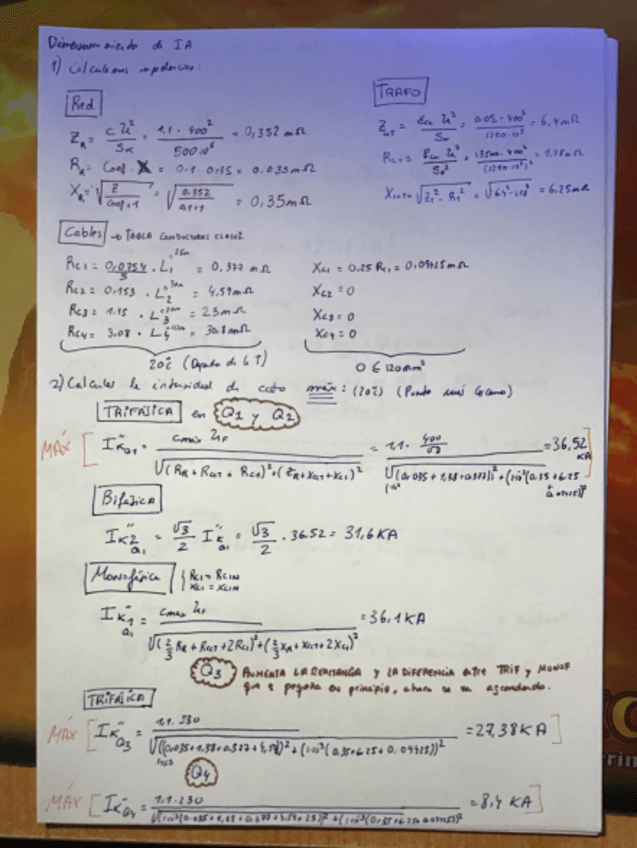 Dimensionamiento de IA
1) Calculamos impedancias:
Red
Z_R = c U² / S_K = 1,1 · 400² / 500·10⁶ = 0,352 mΩ
R_R = Coef. X = 0.1 · 0.35 = 0.035 mΩ
X_R = √(Z / coef+1) = √(0.352 / 0.1+1) = 0,35 mΩ
TRAFO
= 0.05 · 400² / = 6,4 mΩ
= 13500 · 400² / = 1.38 mΩ
= 6.25 mΩ
Cables → TABLA CONDUCTORES CLASE 2
R_C1 = 0,0754 / 5 · L₁ = 0,377 mΩ
R_C2 = 0.153 · L₂ = 4,59 mΩ
R_C3 = 1.15 · L₃ = 23 mΩ
R_C4 = 3.08 · L₄ = 30.8 mΩ
20º (Depende de la T)
X_C1 = 0,25 R_C1 = 0,09425 mΩ
X_C2 = 0
X_C3 = 0
X_C4 = 0
0 ≤ 120 mm²
2) Calcular la intensidad de corto máx: (20º) (Punto más cercano)
TRIFÁSICA en Q1 y Q2
MÁX [ I''_KQ1 = c_max U_F / √((R_R + R_CCT + R_C1)² + (Z_R + X_CCT + X_C1)²) = 1,1 · 400/√3 / √((0,035 + 1,38 + 0.377))² + (1·10⁻³(0,35 + 6.25 + 0.09425))² = 36,52 KA ]
Bifásica
I''_K2 Q1 = √3 / 2 I''_K Q1 = √3 / 2 · 36.52 = 31,6 KA
Monofásica { R_C1 = R_C1N
X_C1 = X_C1N
I''_K1 Q1 = c_max U_F / √((2/3 R_R + R_CCT + 2R_C1)² + (2/3 X_R + X_CCT + 2X_C1)²) = 36,1 KA
Q3 AUMENTA LA RESISTENCIA Y LA DIFERENCIA entre TRIF y MONOF
que es pequeña en principio, ahora se va agrandando.
TRIFÁSICA
MÁX [ I''_K Q3 = 1,1 · 230 / √((0,035 + 1,38 + 0.377 + 4,59))² + (1·10⁻³(0,35 + 6.25 + 0.09425))² = 27,38 KA ]
Q4
MÁX [ I''_K Q4 = 1,1 · 230 / √(1·10⁻³(0.035 + 1,38 + 0.377 + 4.59 + 23))² + (1·10⁻³(0.35 + 6.25 + 0.09425))² = 8,4 KA ]